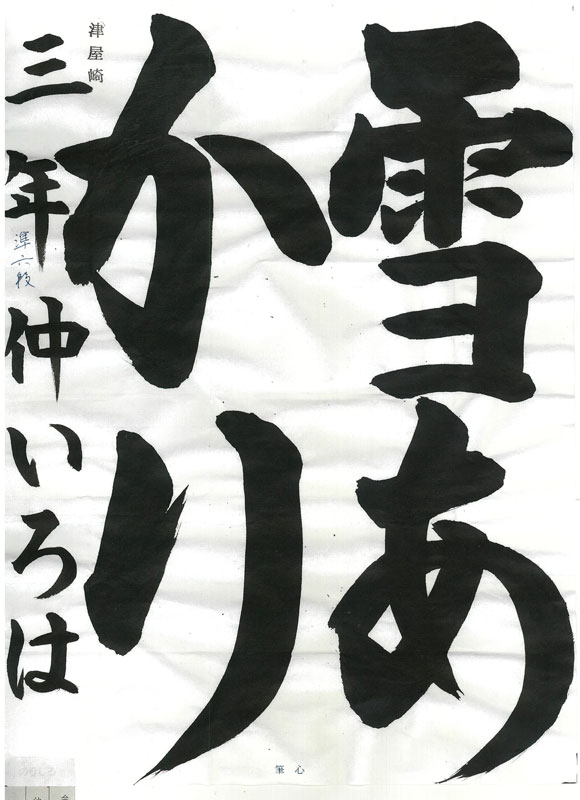 雪あ
かり
津屋崎
三年仲いろは
準六段
筆心